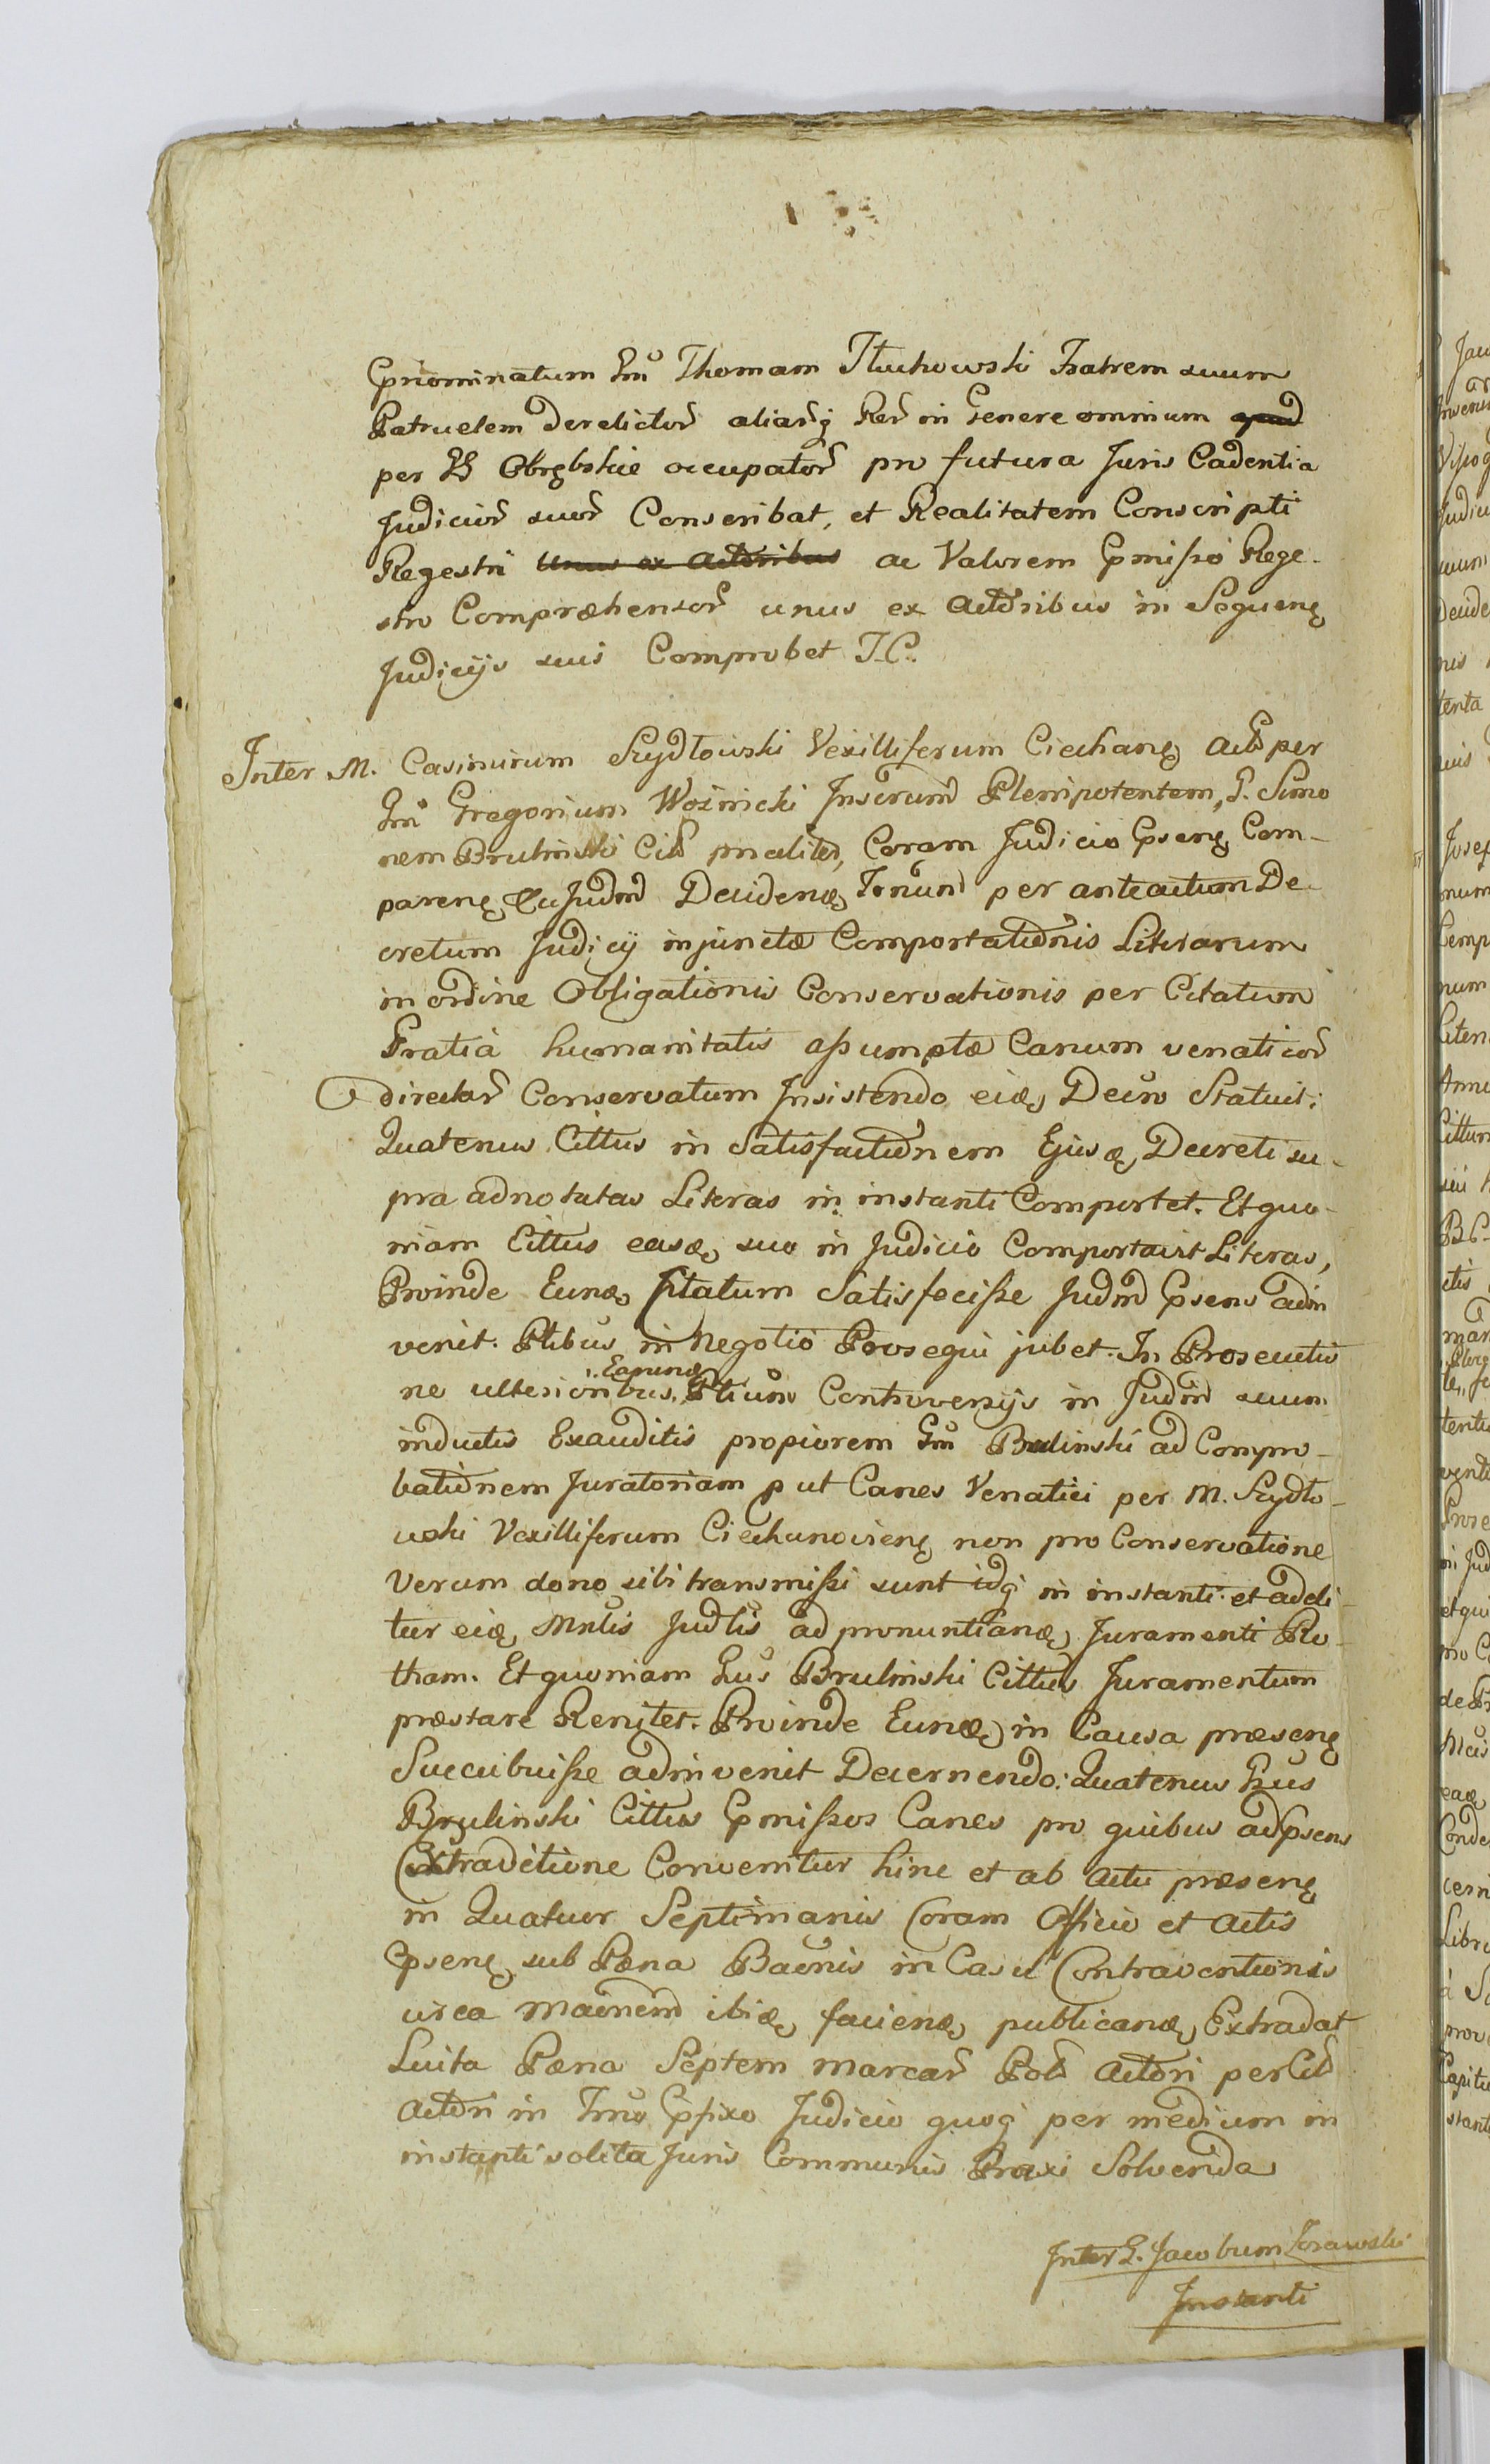 Gpnominatum Gm̃ Thomam Tłuchowski Fratrem suum
Patruelem derelictor̃ aliarq̃ Rer̃ in Genere omnium
per GG Obrębskie occupator̃ pro futura Juris Cadentia
Judicior̃ suor̃ Conscribat, et Realitatem Conscripti
Regestri unus ex actoribus ac Valorem Gpmißo Rege-
stro Compræhensor̃ unus ex actoribus in Sequenę
Judicijs suis Comprobet J.C.
Inter M. Casimirum Szydłowski Vexilliferum Ciechanę act̃ per
Gm̃ Gregorium Woźnicki Jnscrum̃ Plenipotentem, G. Simo
nem Brulinski Cit̃ pnaliter, Coram Judicio Gpsenę Com-
parenę Judm̃ Decidenę, Tenum̃ per anteactum De-
cretum Judicij injunctæ Comportationis Literarum
in ordine Obligationis Conservationis per Citatum
Gratiâ humanitatis aßumptæ Canum venaticor̃
direct̃ar Conservatum Jnsistendo eidę, Decro Statuit:
Quatenus Cittus in Satisfactionem Ejusdę, Decreti su-
pra adnotatas Literas in instanti Comportet. Et quo-
niam Cittus easdę, suo in Judicio Comportavit Literas,
Proinde Eundę, Statum Satisfeciße Judm̃ Gpsens adin
venit. Ptibus in Negotio Prosequi jubet. In Prosecutio
ne ulterioribus Earundę Ptium Controversijs in Judm̃ suum
inductis Exauditis propiorem Gm̃ Brulinski ad Compro-
bationem Juratoriam p ut Canes Venatici per M. Szydło-
wski Vexilliferum Ciechanovienę non pro Conservatione
Verum dono sibi transmißi sunt idq̃ in instanti et addi-
tur eidę, Mnlis Judlis ad pronuntiandę, Juramenti Ro-
tham. Et quoniam Gñus Brulinski Cittus Juramentum
præstare Renitet. Proinde Eundę, in Causa præsenę
Succubuiße adinvenit Decernendo: Quatenus Gñus
Brulinski Cittus Gpmißos Canes pro quibus ad psens
Extraditione Convenitur hinc et ab actu præsenę
in Quatuor Septimanis Coram Officio et actis
Gpsenę, sub Pæna Bannis in Casu Contraventionis
ibidę, faciendę, publicandę, Extradat
Luita Pæna Septem Marcar̃ Pol̃ actori per Cit̃
actori in Tm̃o Gpfixo Judicio quoq̃ per medium in
instanti solita Juris Communis Praxi Solvenda
Inter G. Jacobum Zorawski
Instanti